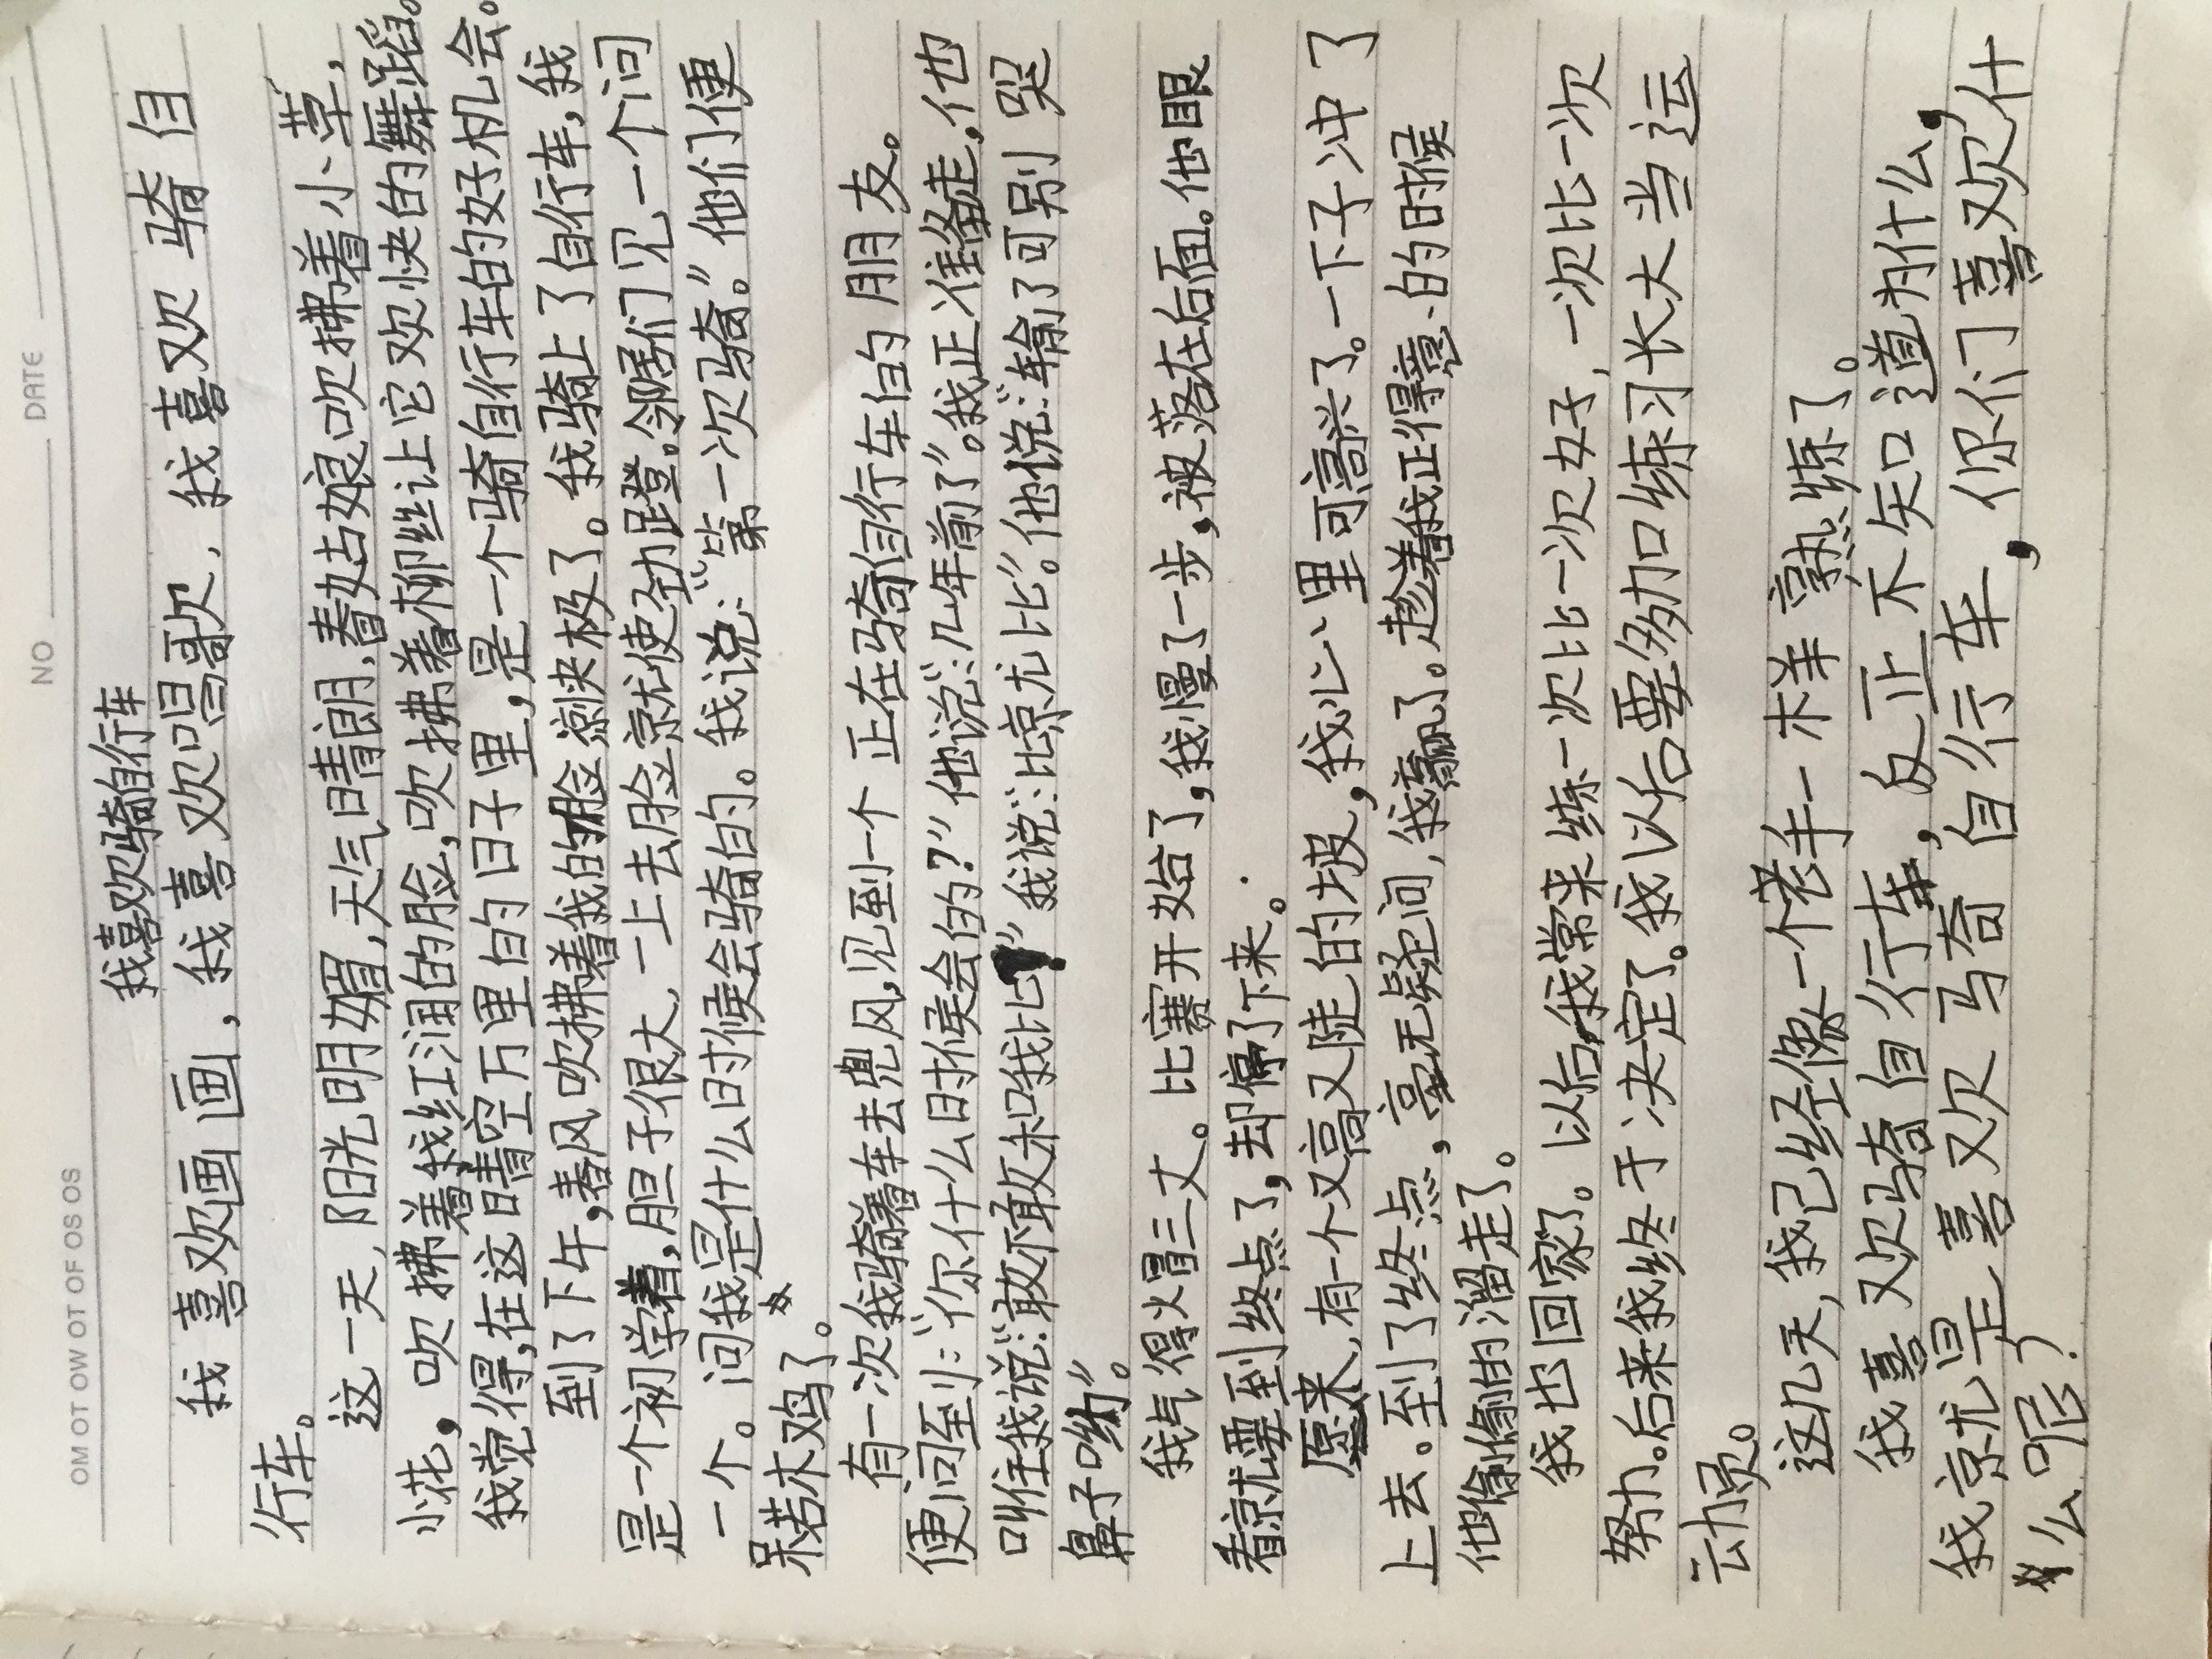 NO DATE
OM OT OW OT OF OS OS
我喜欢骑自行车
我喜欢画画，我喜欢唱歌，我喜欢骑自
行车。
这一天，阳光明媚，天气晴朗，春姑娘吹拂着小草，
小花，吹拂着我红润的脸，吹拂着柳丝让它欢快的舞蹈。
我觉得，在这晴空万里的日子里，是一个骑自行车的好机会。
到了下午，春风吹拂着我的脸凉快极了。我骑上了自行车，我
是一个初学着，胆子很大，一上去脸就使劲蹬。邻居们见一个问
一个。问我是什么时候会骑的。我说：“第一次骑。”他们便
呆若木鸡了。
有一次我骑着车去兜风，见到一个正在骑自行车的朋友。
便问到：“你什么时候会的？”他说：几年前了”。我正准备走，他
叫住我说：“敢不敢和我比”我说：比就比”。他说：“输了可别哭
鼻子哟”。
我气得火冒三丈。比赛开始了，我慢了一步，被落在后面。他眼
看就要到终点了，却停了下来。
原来，有一个又高又陡的坡，我心里可高兴了。一下子冲了
上去。到了终点，毫无疑问，我赢了。趁着我正得意的时候
他偷偷的溜走了。
我也回家了。以后我常来练一次比一次好，一次比一次
努力。后来我终于决定了。我以后要多加练习长大当运
动员。
这几天，我已经像一个老手一样熟练了。
我喜欢骑自行车，反正不知道为什么，
我就是喜欢骑自行车，你们喜欢什
么呢？